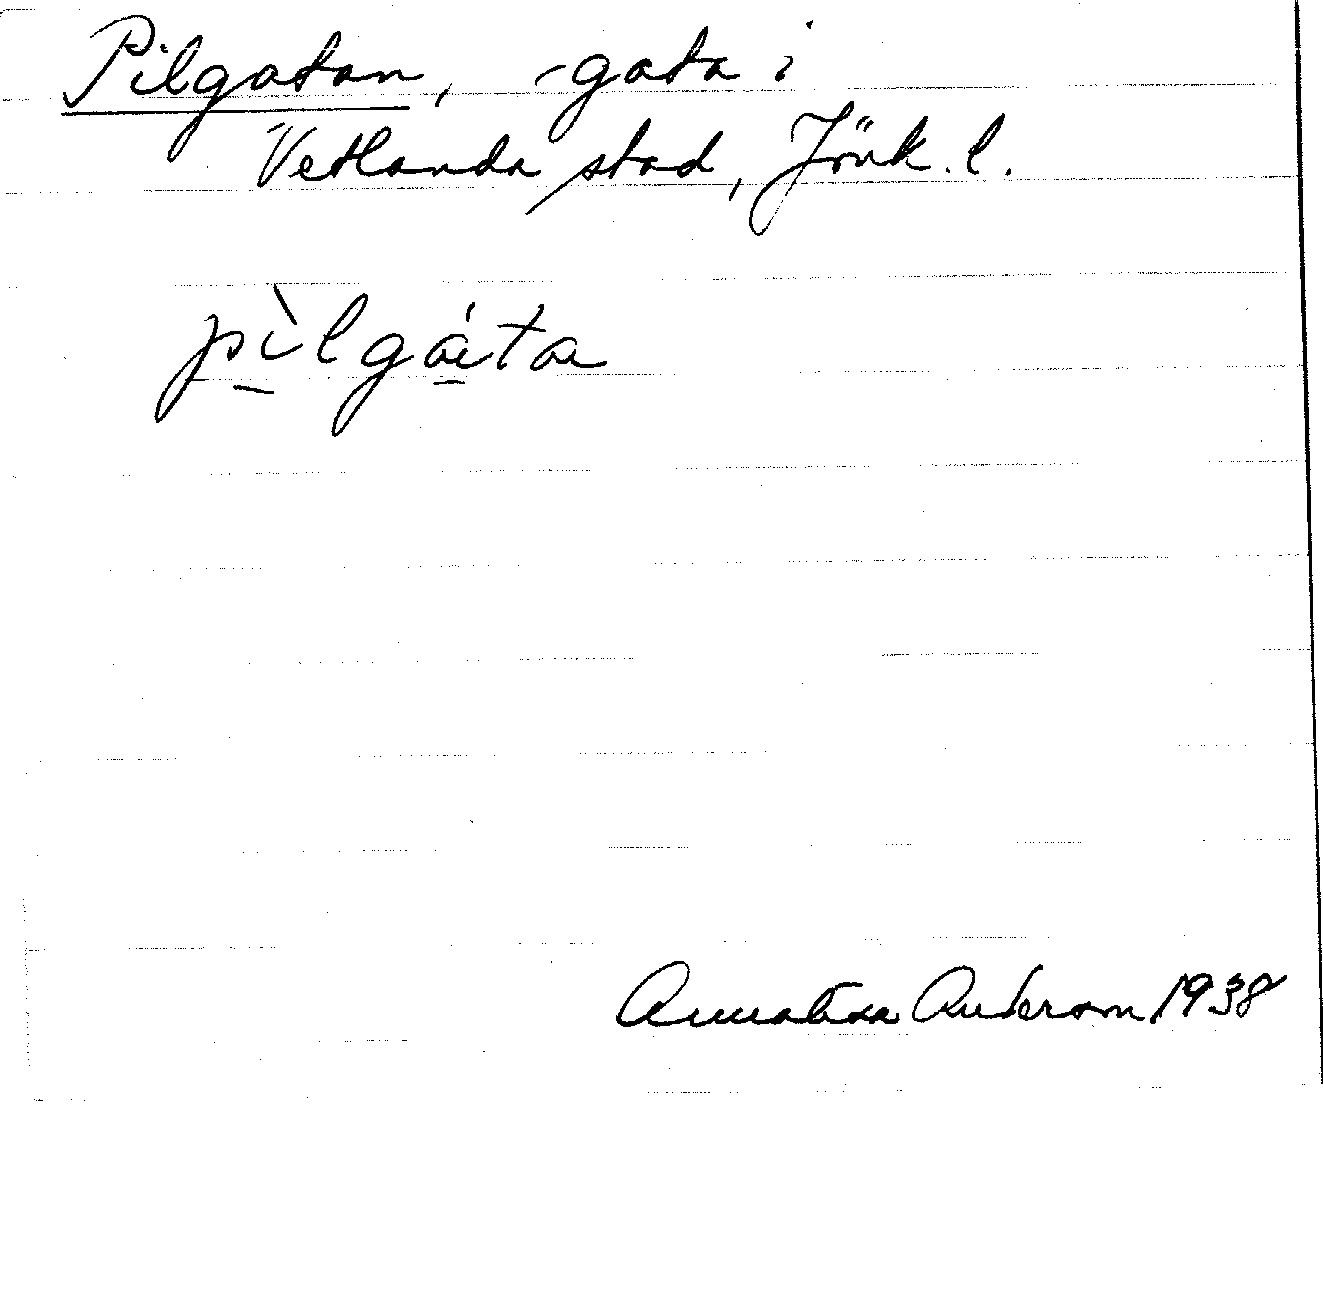 Pilgatan, -gata i
Vetlanda stad, Jönk. l.
pìlgáta
Annalisa Anderson 1938